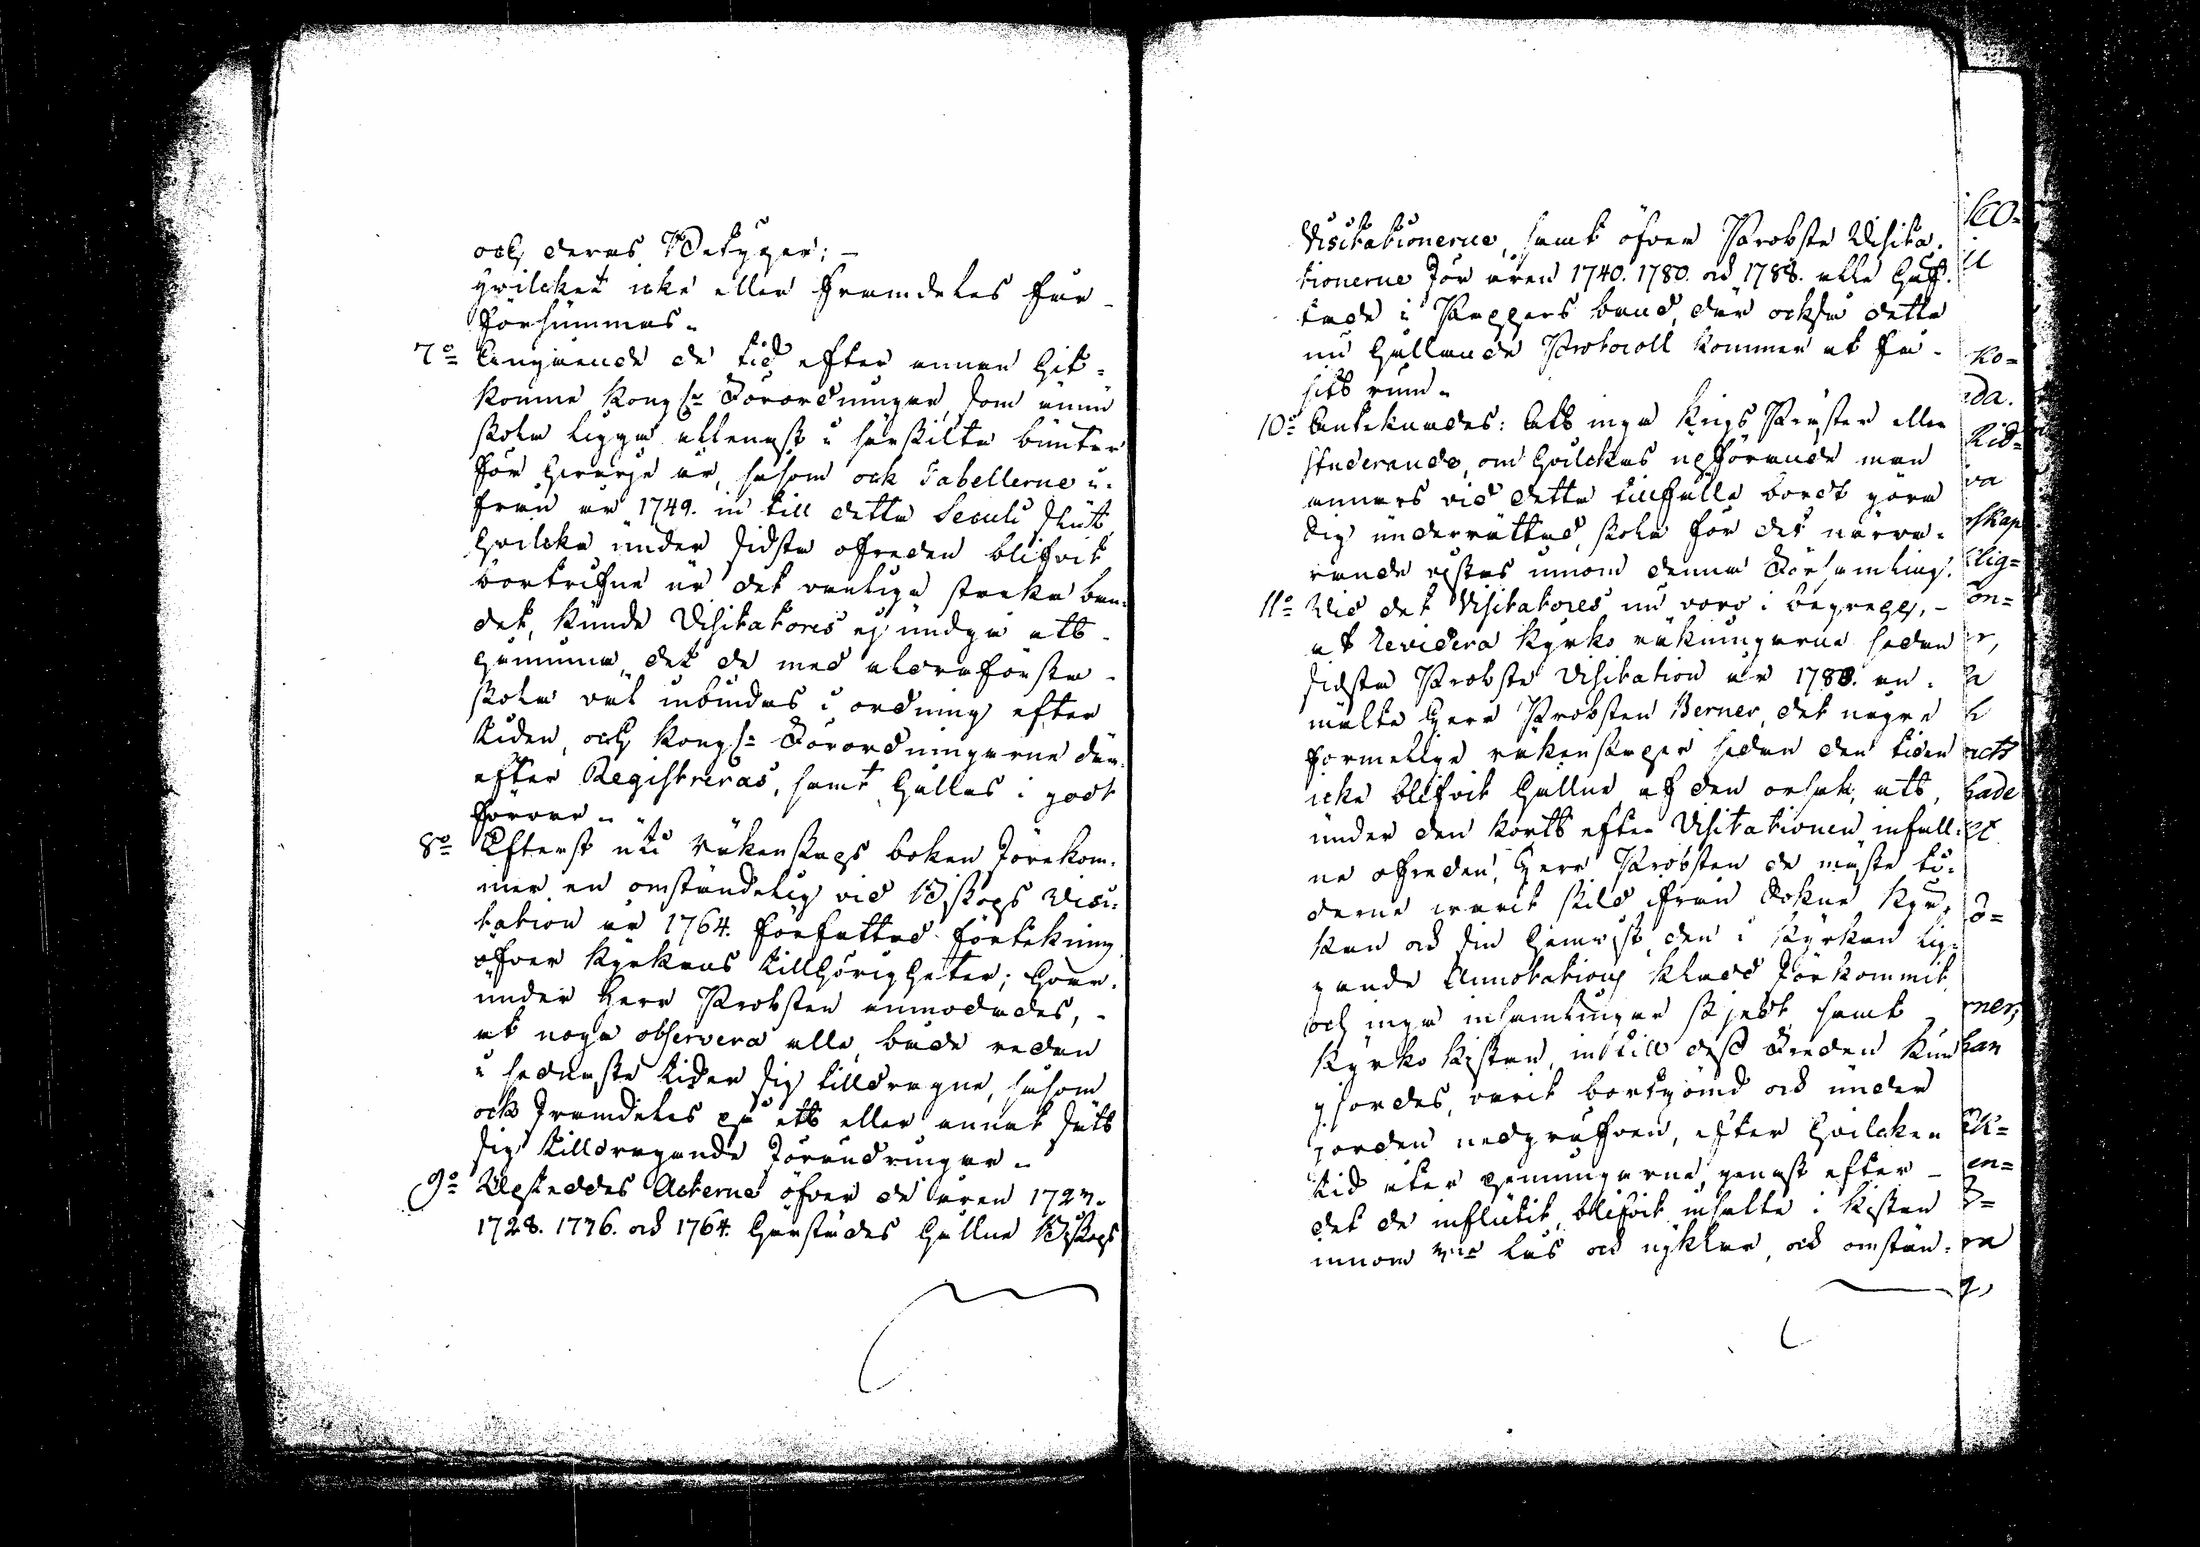 och deras Betyger; –
hvilcket icke eller framdeles får
försummas.
7:o Angående de tid efter annan hit-
komne Kongl:e Förordningar, som ännu
skola ligga allenast i särskilta bunter
för hvarje år, såsom ock Tabellerne i-
från år 1749. in till detta Seculi slut,
hvilcka under sidsta ofreden blifvit
bortrifne ur det vanliga starka ban-
det, kunde Visitatores ej undgå att
påminna, det de med aldraförsta
skola väl inbindas i ordning efter
tiden, och Kongl:e Förordningarne där-
efter Registreras, samt hållas i godt
förvar.
8:o Efterst uti räkenskaps boken förekom-
mer en omständelig vid Biskops Visi-
tation år 1764. författad förtekning
öfver Kyrkans tillhörigheter; hvar-
under Herr Probsten anmodades, -
at noga observera alla både redan
i sednaste tider sig tilldragne, såsom
ock framdeles på ett eller annat sätt
sig tilldragande förändringar.
9:o Upsteddes Acterne öfver de åren 1727.
1728. 1776. och 1764. härstädes hållne Biskops
Visitationerne, samt öfver Probste Visita-
tionerne för åren 1740. 1780. och 1788. alla häf-
tade i Pappers band, där också detta
nu hållande Protocoll kommer at få
sitt rum.
10:o Antecknades: Att inga Krigs Präster eller
Studerande, om hvilckas upförande man
annars vid detta tillfälle bordt göra
sig underrättad, skola för det närva-
rande vistas innom denna Församling.
11:o Vid det Visitatores nu voro i begrepp, -
at Revidera Kyrko räkningarne sedan
sidsta Probste Visitation år 1788. an-
mälte Herr Probsten Berner, det några
formelige räkenskaper sedan den tiden
icke blifvit hållne af den orsak, att,
under den kort efter Visitationen infall-
ne ofreden, Herr Probsten de mäste ti-
derne varit skild ifrån Sokne Kyr-
kan och sin hemvist, den i Kyrkan lig-
gande Annotations Kladd förkommit,
och inga insamlingar skjedt samt
Kyrko Kistan, in till dess Freden kun-
gjordes, varit bortgömd och under
jorden nedgrafven, efter hvilcken
tid åter penningarne, genast efter -
det de inflütit, blifvit insatte i Kistan
innom lås och nycklar, och omstän-